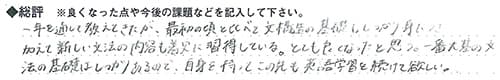 ◆総評 ※良くなった点や今後の課題などを記入して下さい。
一年を通して教えてきたが、最初の頃とくらべて文構造の基礎もしっかり身につ
加えて新しい文法の内容も着実に習得している。とても良くなったと思う。一番大事の文
法の基礎はしっかりあるので、自身を持ってこの先も英語学習を続けて欲しい。